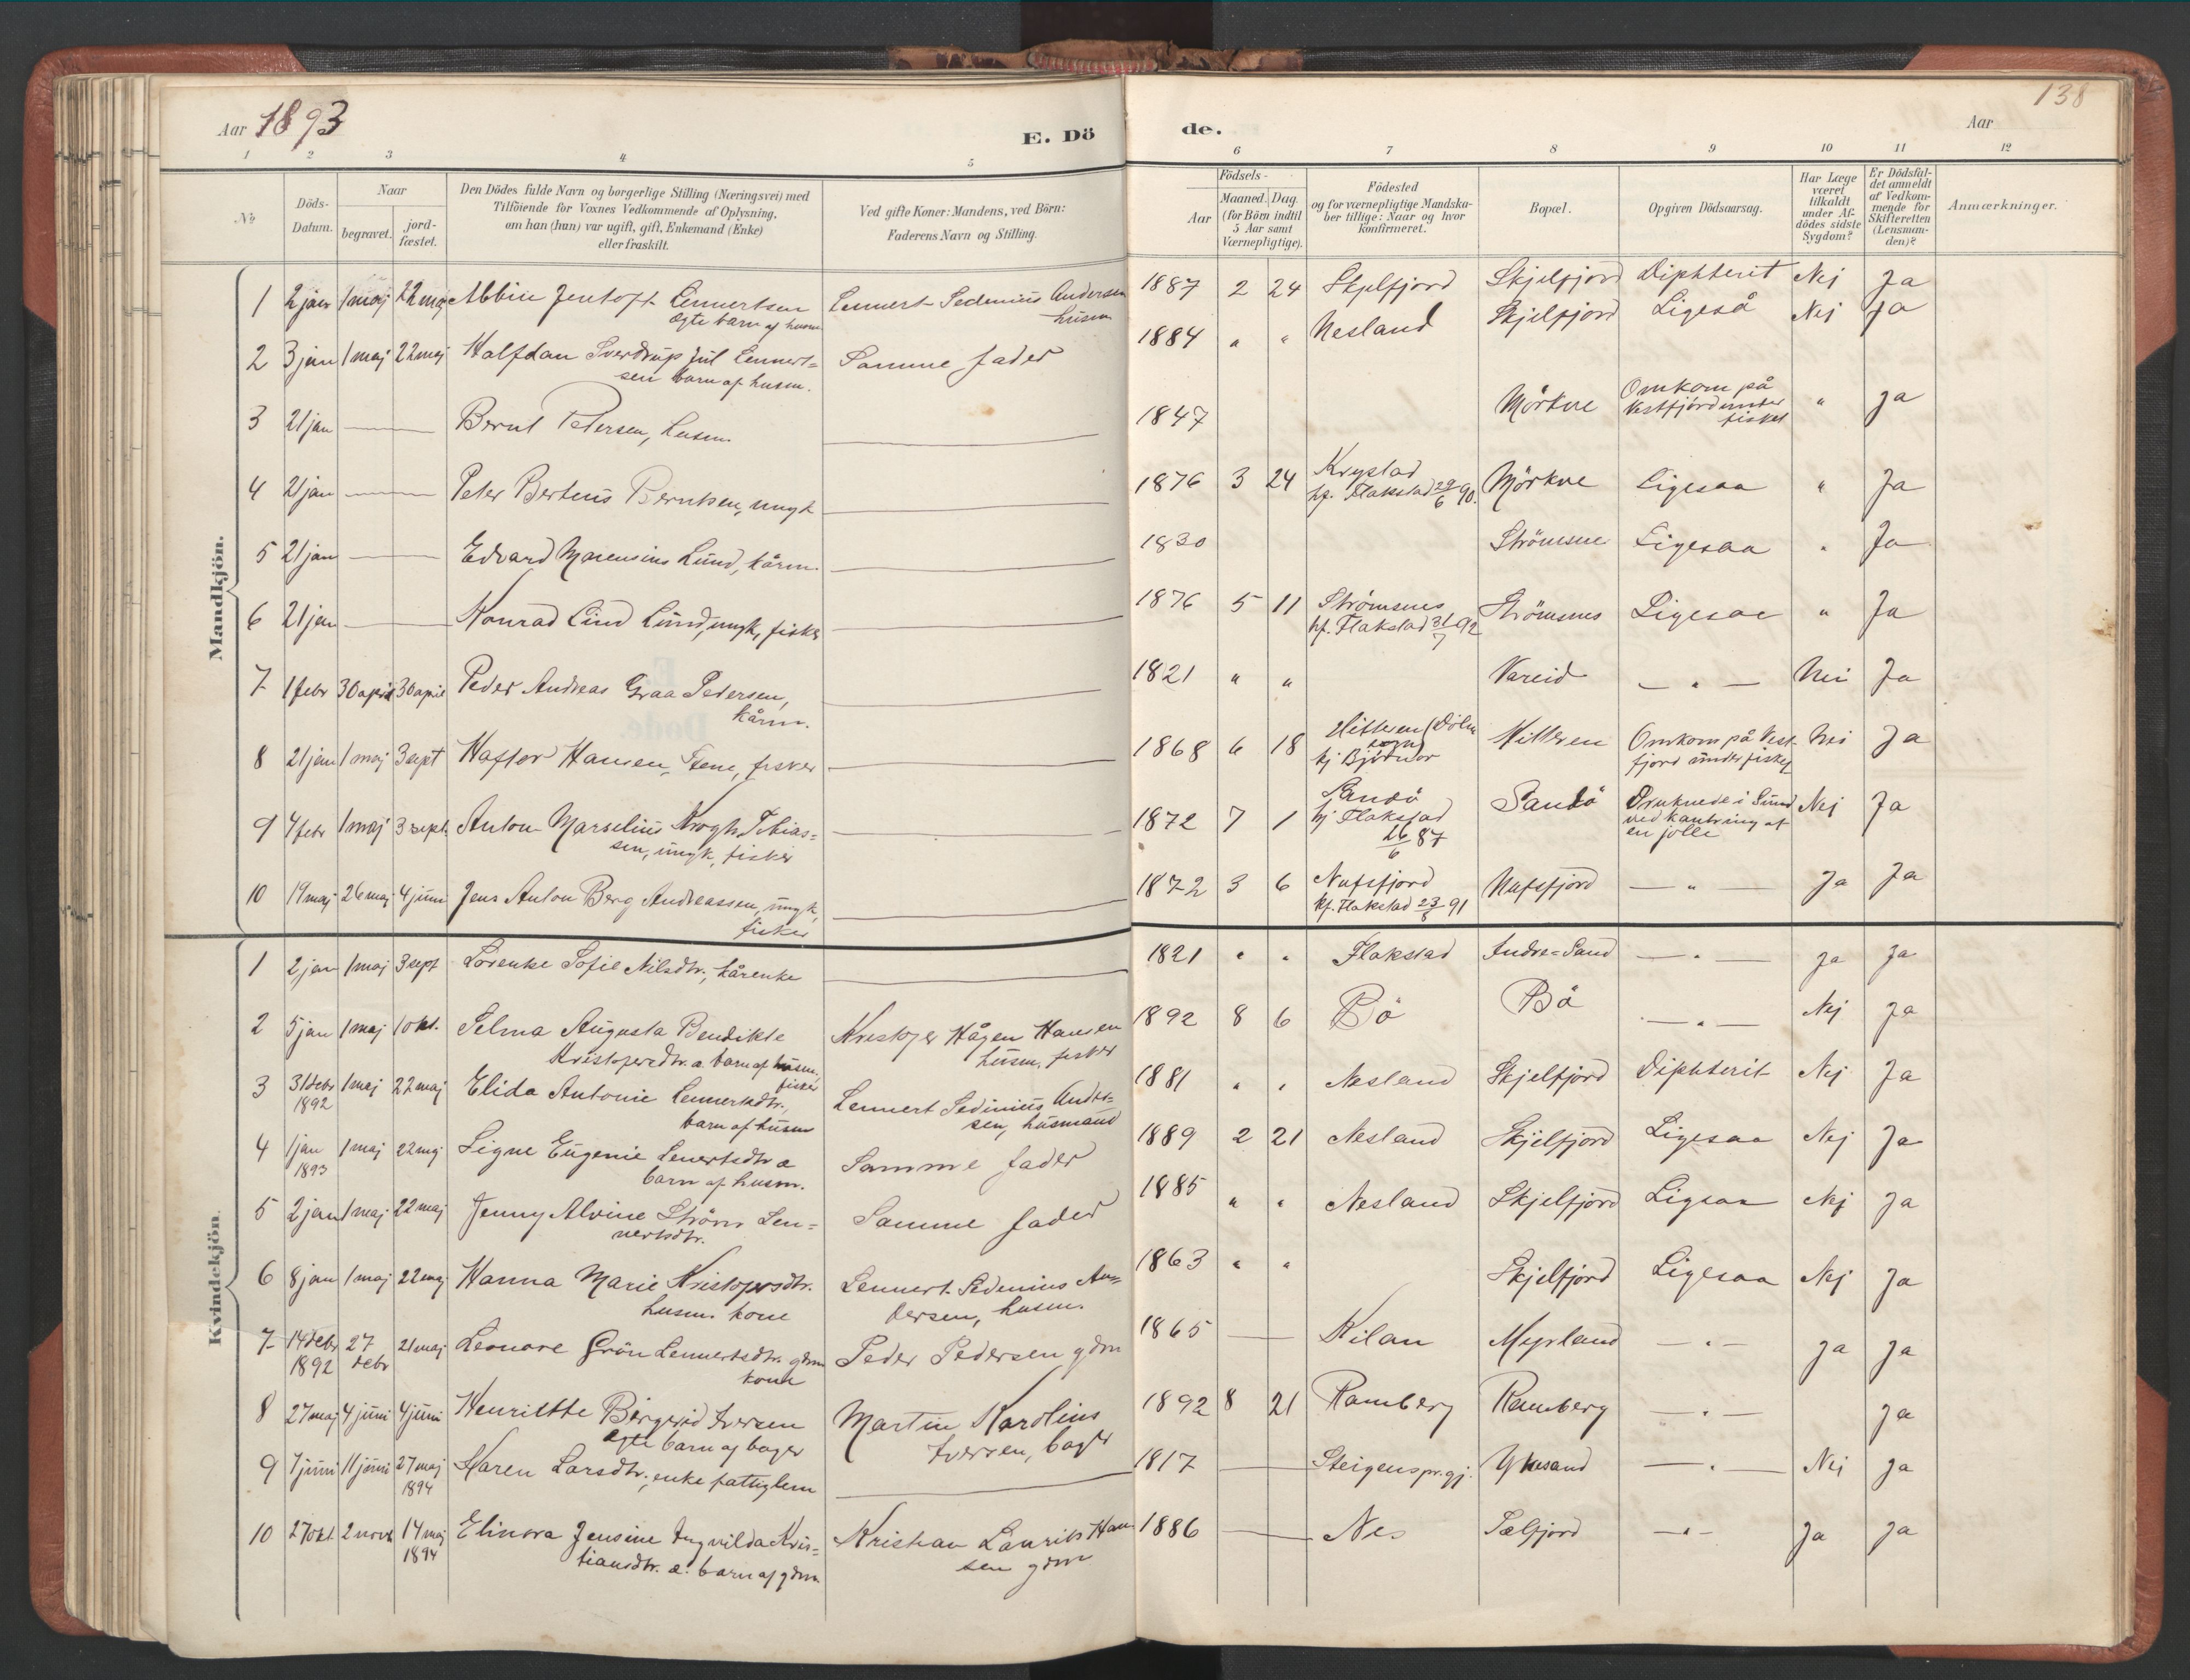 138
Aar 1893
E. Dö
de.
Aar
1 2 3 4 5 6 7 8 9 10 11 12
No
Döds-
Datum.
Naar
begravet. jord-
fæstet.
Den Dödes fulde Navn og borgerlige Stilling (Næringsvei) med
Tilföiende for Voxnes Vedkommende af Oplysning,
om han (hun) var ugift, gift, Enkemand (Enke)
eller fraskilt.
Ved gifte Koner: Mandens, ved Börn:
Faderens Navn og Stilling.
Födsels-
Aar
Maaned. Dag.
(for Börn indtil
5 Aar samt
Værnepligtige).
Födested
og for værnepligtige Mandska-
ber tillige: Naar og hvor
konfirmeret.
Bopæl.
Opgiven Dödsaarsag.
Har Læge
været
tilkaldt
under Af-
dödes sidste
Sygdom?
Er Dödsfal-
det anmeldt
af Vedkom-
mende for
Skifteretten
(Lensman-
den)?
Anmærkninger.
Mandkjön.
1 2 jan 1 maj 22 maj Albin Jentoft Lennertsen Lennert Sedenius Andersen 1887 2 24 Skjelfjord Skjelfjord Diphterit Nej Ja
ægte barn af husm husm
2 3 jan 1 maj 22 maj Halfdan Sverdrup Jul Lennert= Samme fader 1884 " " Nesland Skjelfjord Ligeså Nej Ja
sen barn af husm.
3 21 jan — Bernt Petersen, husm. — 1847 Mörkve Omkom på " Ja
Vestfjord under
fisket
4 21 jan — Peter Berteus Berntsen, ungk — 1876 3 24 Krystad Mörkve Ligesaa " Ja
kf. Flakstad 29/6 90.
5 21 jan — Edvard Marensius Lund, kårm. — 1830 Strömsne Ligesaa " Ja
6 21 jan — Konrad Lind Lund, ungk, fisker — 1876 5 11 Strömsnes Strömsnes Ligesaa " Ja
kf. Flakstad 31/7 92
7 1 febr 30 april 30 april Peder Andreas Graa Pedersen, — 1821 " " Vareid — " — Nei Ja
kårm.
8 21 jan 1 maj 3 sept Haftor Hansen, Stene, fisker — 1868 6 18 Hitteren (Dolm Hitteren Omkom på Vest- Nei Ja
sogn) fjord under fiskeri
kf Björnør
9 4 febr 1 maj 3 sept. Anton Marselius Krogh Tobias= — 1872 7 1 Sandö Sandö Druknede i Sund Nej Ja
sen, ungk, fisker kf Flakstad ved kantring af
26/6 87 en jolle
10 19 maj 26 maj 4 juni Jens Anton Berg Andreassen, ungk, — 1872 3 6 Nufsfjord Nufsfjord — " — Ja Ja
fisker kf. Flakstad 23/8 91
Kvindekjön.
1 2 jan 1 maj 3 sept Lorentse Sofie Nilsdtr., kårenke — 1821 " " Flakstad Indre=Sand — " — Ja Ja
2 5 jan 1 maj 1 okt. Selma Augusta Bendikte Kristofer Hågen Hansen 1892 8 6 Bö Bö — " — Nej Ja
Kristofersdtr. æ. barn af husm. husm. fisker
fisker
3 31 debr 1 maj 22 maj Elida Antonie Lennertsdtr., Lennert Sedinius Ander= 1881 " " Nesland Skjelfjord Diphterit Nej Ja
1892 barn af husm sen, husmand
4 1 jan 1 maj 22 maj Signe Eugenie Lenertsdtr æ Samme fader 1889 2 21 Nesland Skjelfjord Ligesaa Nej Ja
1893 barn af husm.
5 2 jan 1 maj 22 maj Jenny Alvine Ström Len= Samme fader 1885 " " Nesland Skjelfjord Ligesaa Nej Ja
nertsdtr.
6 8 jan 1 maj 22 maj Hanna Marie Kristofersdtr. Lennert Sedenius An= 1863 " " Skjelfjord Ligesaa Nej Ja
husm. kone dersen, husm.
7 14 debr 27 21 maj Leonore Grön Lennertsdtr. gdm Peder Pedersen gdm 1865 — Kilan Myrland — " — Ja Ja
1892 debr kone
8 27 maj 4 juni 4 juni Henriette Birgerid Iversen Martin Karolius 1892 8 21 Ramberg Ramberg — " — Ja
ægte barn af bager Iversen, bager
9 7 juni 11 juni 27 maj Maren Larsdtr., enke fattiglem — 1817 — Steigens pr.gj. Ytresand — " — Nej Ja
1894
10 27 okt. 2 novb 14 maj Elinora Jensine Ingvilda Kris= Kristian Laurits Han 1886 — Nes Selfjord — " — Ja Ja
1894 tiansdtr. æ. barn af gdm. sen gdm